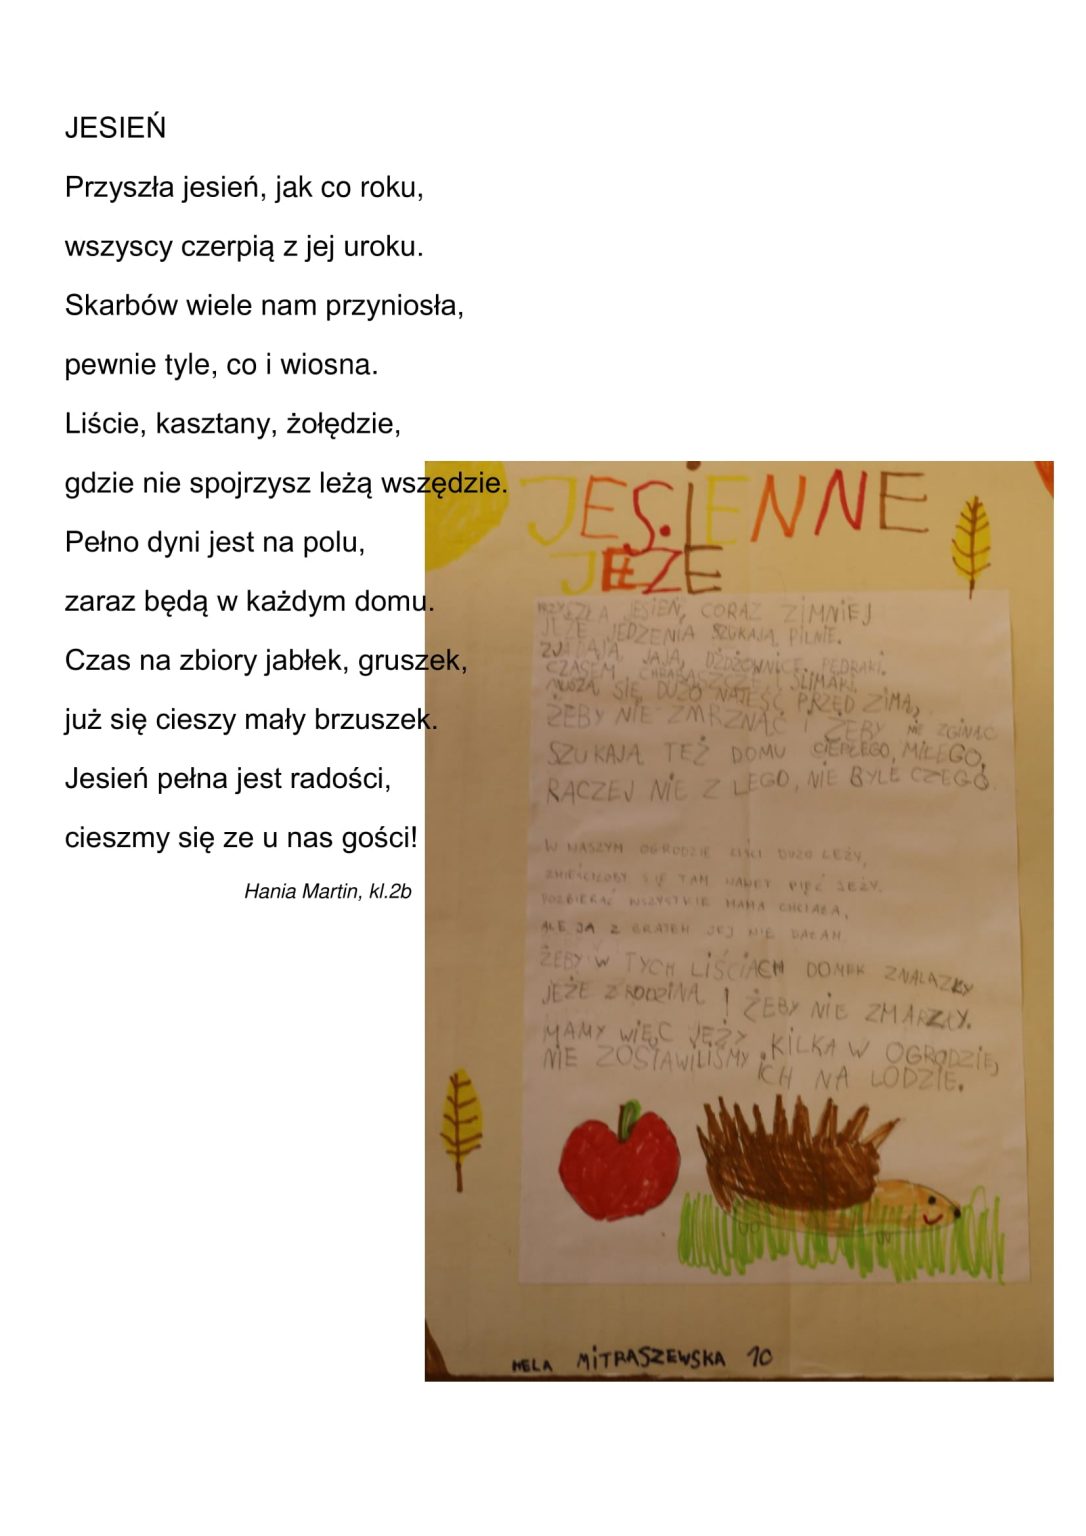 JESIEŃ
Przyszła jesień, jak co roku,
wszyscy czerpią z jej uroku.
Skarbów wiele nam przyniosła,
pewnie tyle, co i wiosna.
Liście, kasztany, żołędzie,
gdzie nie spojrzysz leżą wszędzie.
Pełno dyni jest na polu,
zaraz będą w każdym domu.
Czas na zbiory jabłek, gruszek,
już się cieszy mały brzuszek.
Jesień pełna jest radości,
cieszmy się ze u nas gości!
Hania Martin, kl.2b
JESIENNE
JEŻE
PRZYSZŁA JESIEŃ, CORAZ ZIMNIEJ
JEŻE JEDZENIA SZUKAJĄ PILNIE.
ZJADAJĄ JAJA, DŻDŻOWNICE, PĘDRAKI.
CZASEM CHRABĄSZCZE I ŚLIMAKI.
MUSZĄ SIĘ DUŻO NAJEŚĆ PRZED ZIMĄ,
ŻEBY NIE ZMRZNĄĆ I ŻEBY NIE ZGINĄĆ
SZUKAJĄ TEŻ DOMU CIEPŁEGO, MIŁEGO,
RACZEJ NIE Z LEGO, NIE BYLE CZEGO.
W NASZYM OGRODZIE LIŚCI DUŻO LEŻY,
ZMIEŚCIŁOBY SIĘ TAM NAWET PIĘĆ JEŻY.
POZBIERAĆ WSZYSTKIE MAMA CHCIAŁA,
ALE JA Z BRATEM JEJ NIE DAŁAM
ŻEBY W TYCH LIŚCIACH DOMEK ZNALAZŁY
JEŻE Z RODZINĄ I ŻEBY NIE ZMARZŁY.
MAMY WIĘC JEŻY KILKA W OGRODZIE,
NIE ZOSTAWILIŚMY ICH NA LODZIE.
HELA MITRASZEWSKA 1C